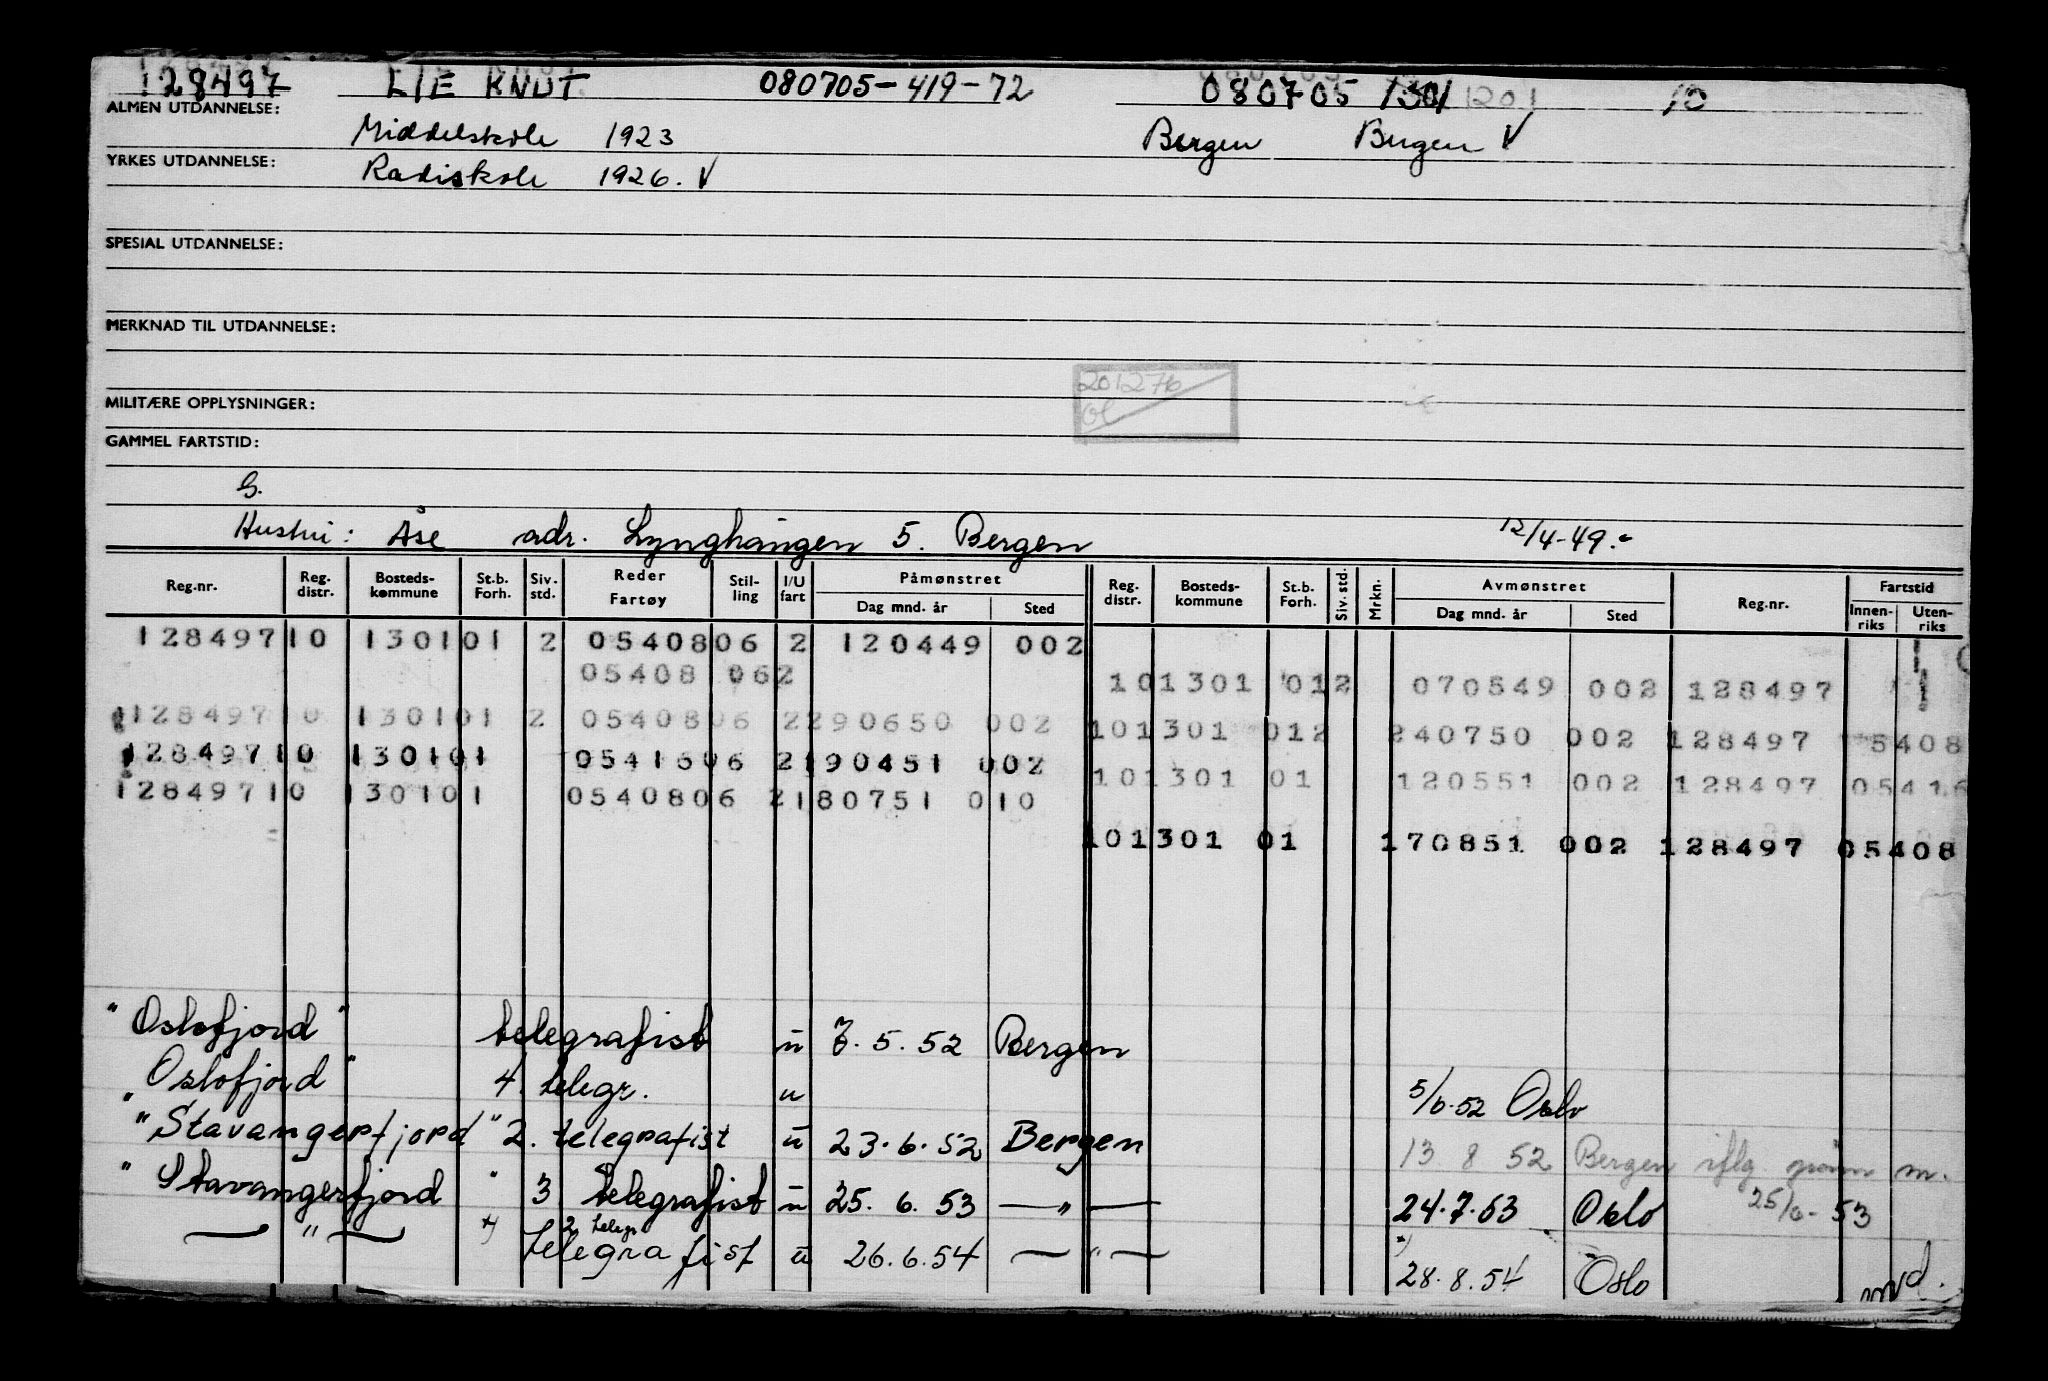 128497 LIE KNUT 080705-419-72 080705 1301 1201 10
ALMEN UTDANNELSE:
Middelskole 1923 Bergen Bergen V
YRKES UTDANNELSE:
Radiskole 1926. V
SPESIAL UTDANNELSE:
MERKNAD TIL UTDANNELSE:
201276
Ol
MILITÆRE OPPLYSNINGER:
GAMMEL FARTSTID:
G.
Hustru: Åse adr. Lynghaugen 5. Bergen 12/4-49.-
Reg.nr. Reg. distr. Bosteds-kommune St.b. Forh. Siv. std. Reder Fartøy Stil-ling I/U fart Påmønstret Dag mnd. år Sted Reg. distr. Bosteds-kommune St.b. Forh. Siv. std. Mrkn. Avmønstret Dag mnd. år Sted Reg.nr. Fartstid Innen-riks Uten-riks
128497 10 1301 01 2 05408 06 2 120449 002
05408 06 2 10 1301 01 2 070549 002 128497
128497 10 1301 01 2 05408 06 2 290650 002 10 1301 01 2 240750 002 128497 5408
128497 10 1301 01 05416 06 2 190451 002 10 1301 01 120551 002 128497 05416
128497 10 1301 01 05408 06 2 180751 010
10 1301 01 170851 002 128497 05408
"Oslofjord" telegrafist u 7.5.52 Bergen
"Oslofjord" 4. telegr. u 5/6.52 Oslo
"Stavangerfjord" 2. telegrafist u 23.6.52 Bergen 13 8 52 Bergen iflg m.
"Stavangerfjord" 3 telegrafist u 25.6.53 —"— 24.7.53 Oslo 25/6-53
—"— *) 2 telegr
telegrafist u 26.6.54 —"— *) 28.8.54 Oslo md.